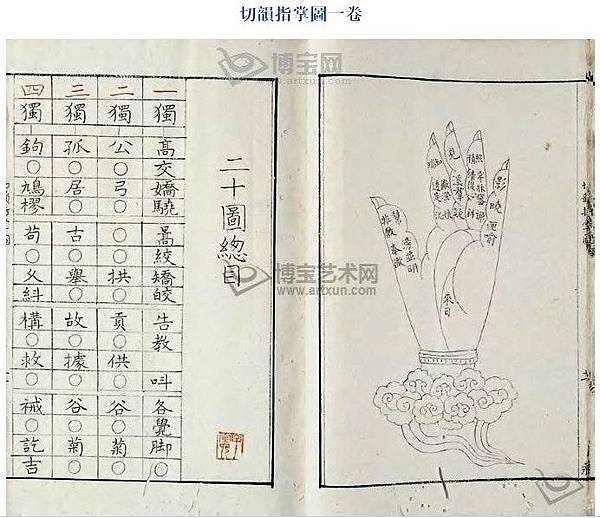 切韻指掌圖一卷
影曉匣喻
照穿牀審禪
精清從心斜
見
溪羣疑
來日
二十圖總目
一獨高交嬌驍暠絞矯皎告教呌各覺脚○
二獨公○弓○○○拱○貢○供○谷○菊○
三獨孤○居○古○舉○故○據○谷○菊○
四獨鉤○鳩樛苟○久糾構○救○裓○訖吉
博宝艺术网
www.artxun.com